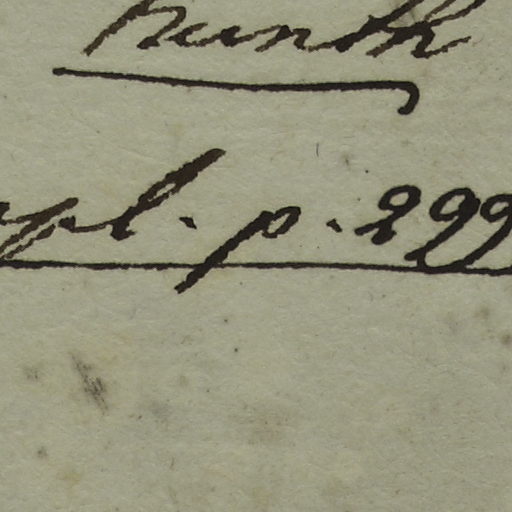 Kunth
pl. p. 299